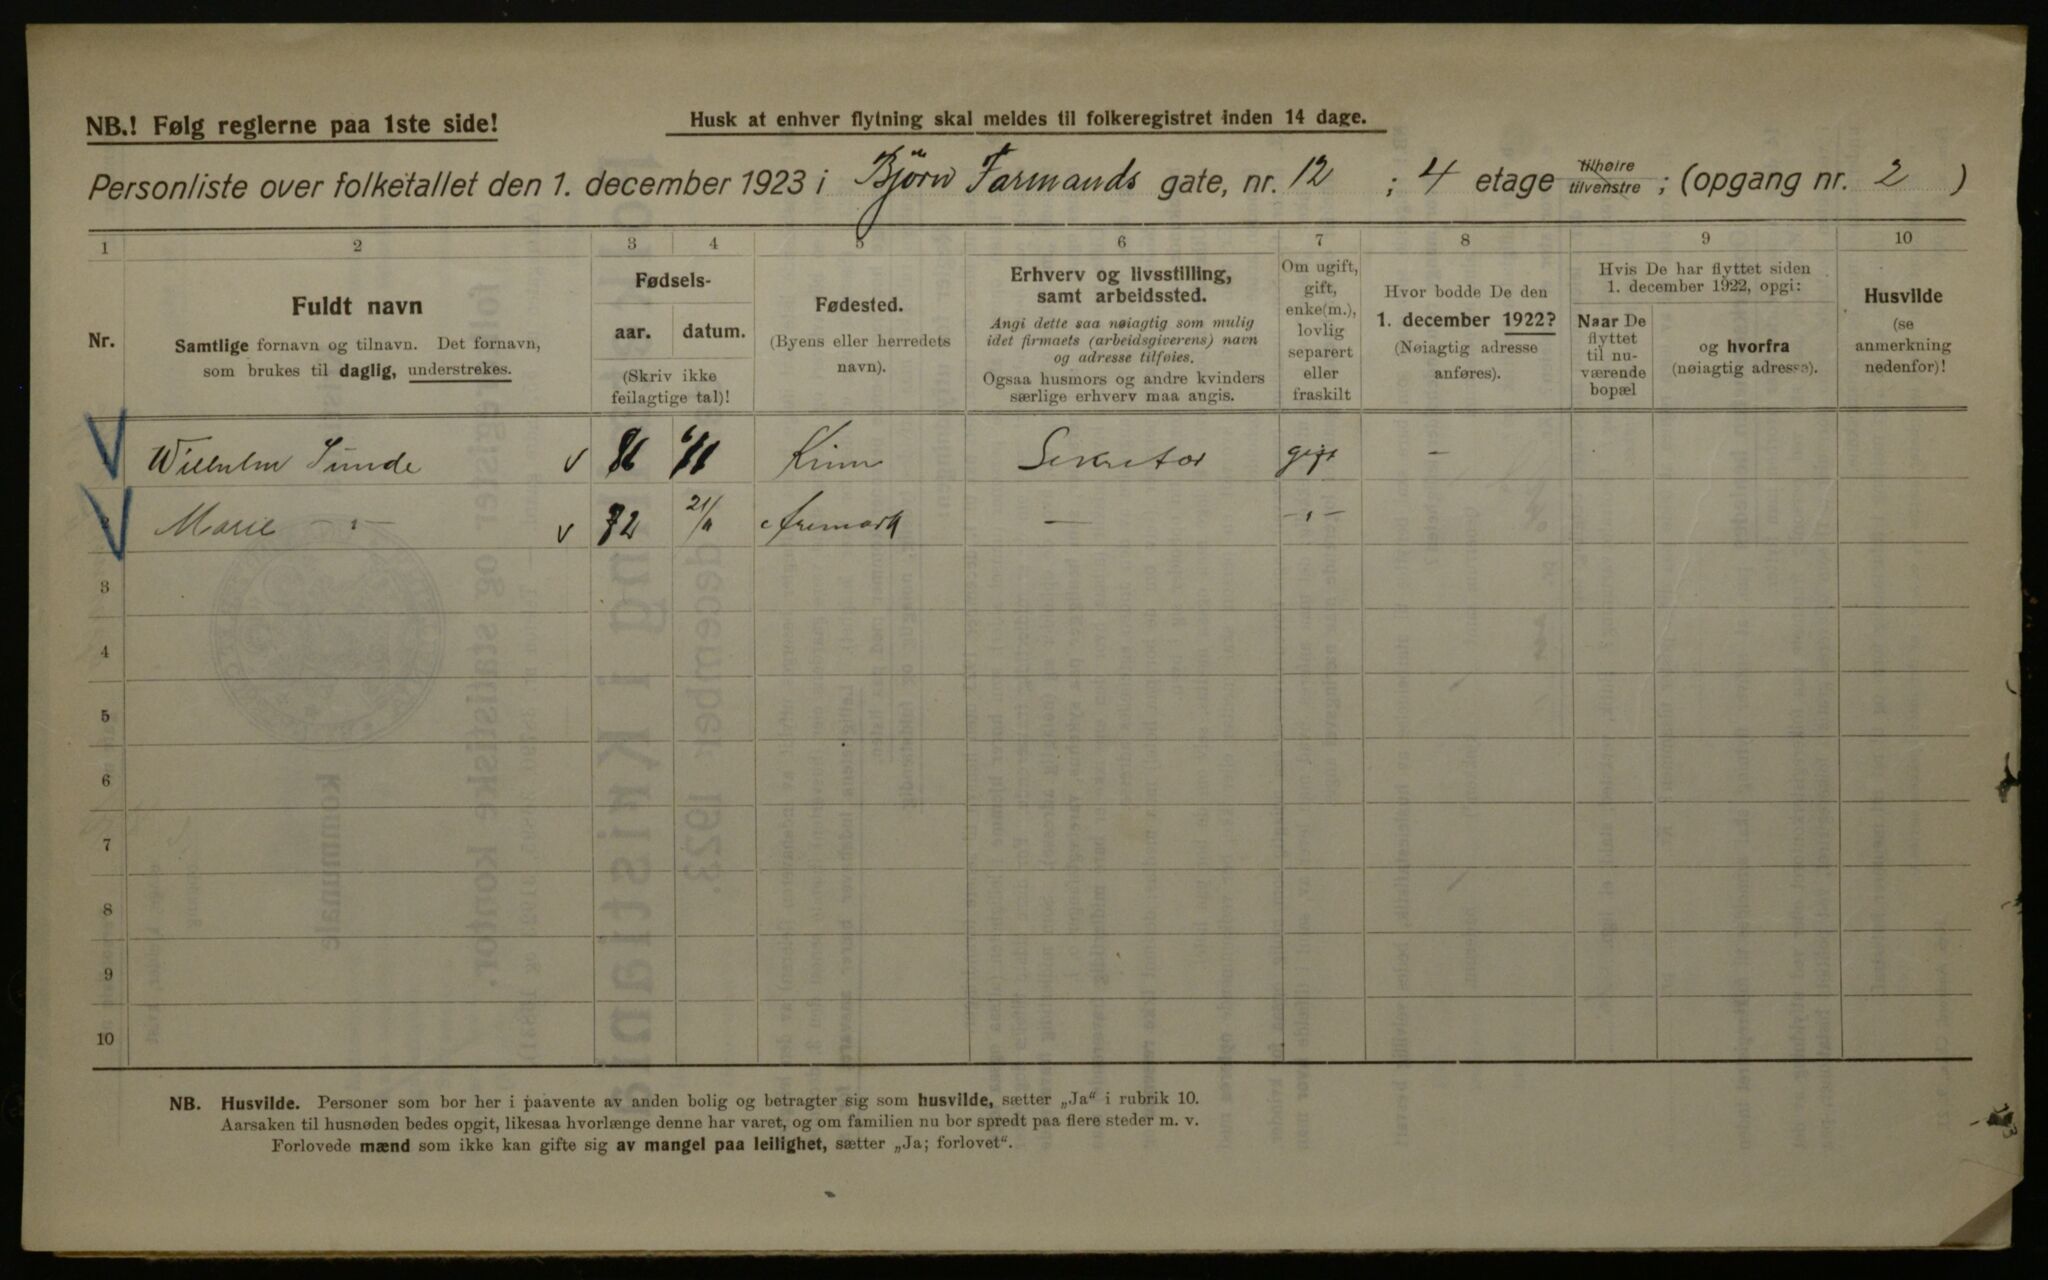 NB.! Følg reglerne paa 1ste side!
Husk at enhver flytning skal meldes til folkeregistret inden 14 dage.
Personliste over folketallet den 1. december 1923 i Bjørn Farmands gate, nr. 12 ; 4 etage tilhøire tilvenstre ; (opgang nr. 2 )
1 2 3 4 5 6 7 8 9 10
Nr.
Fuldt navn
Samtlige fornavn og tilnavn. Det fornavn,
som brukes til daglig, understrekes.
Fødsels-
aar. datum.
(Skriv ikke
feilagtige tal)!
Fødested.
(Byens eller herredets
navn).
Erhverv og livsstilling,
samt arbeidssted.
Angi dette saa nøiagtig som mulig
idet firmaets (arbeidsgiverens) navn
og adresse tilføies.
Ogsaa husmors og andre kvinders
særlige erhverv maa angis.
Om ugift,
gift,
enke(m.),
lovlig
separert
eller
fraskilt
Hvor bodde De den
1. december 1922?
(Nøiagtig adresse
anføres).
Hvis De har flyttet siden
1. december 1922, opgi:
Naar De
flyttet
til nu-
værende
bopæl
og hvorfra
(nøiagtig adresse).
Husvilde
(se
anmerkning
nedenfor)!
Wilhelm Sunde v 6/11 Kinn Sekretær gift —
2 Marie —"— v 72 Aremark — —"—
3
4
5
6
7
8
9
10
NB. Husvilde. Personer som bor her i paavente av anden bolig og betragter sig som husvilde, sætter „Ja“ i rubrik 10.
Aarsaken til husnøden bedes opgit, likesaa hvorlænge denne har varet, og om familien nu bor spredt paa flere steder m. v.
Forlovede mænd som ikke kan gifte sig av mangel paa leilighet, sætter „Ja; forlovet“.